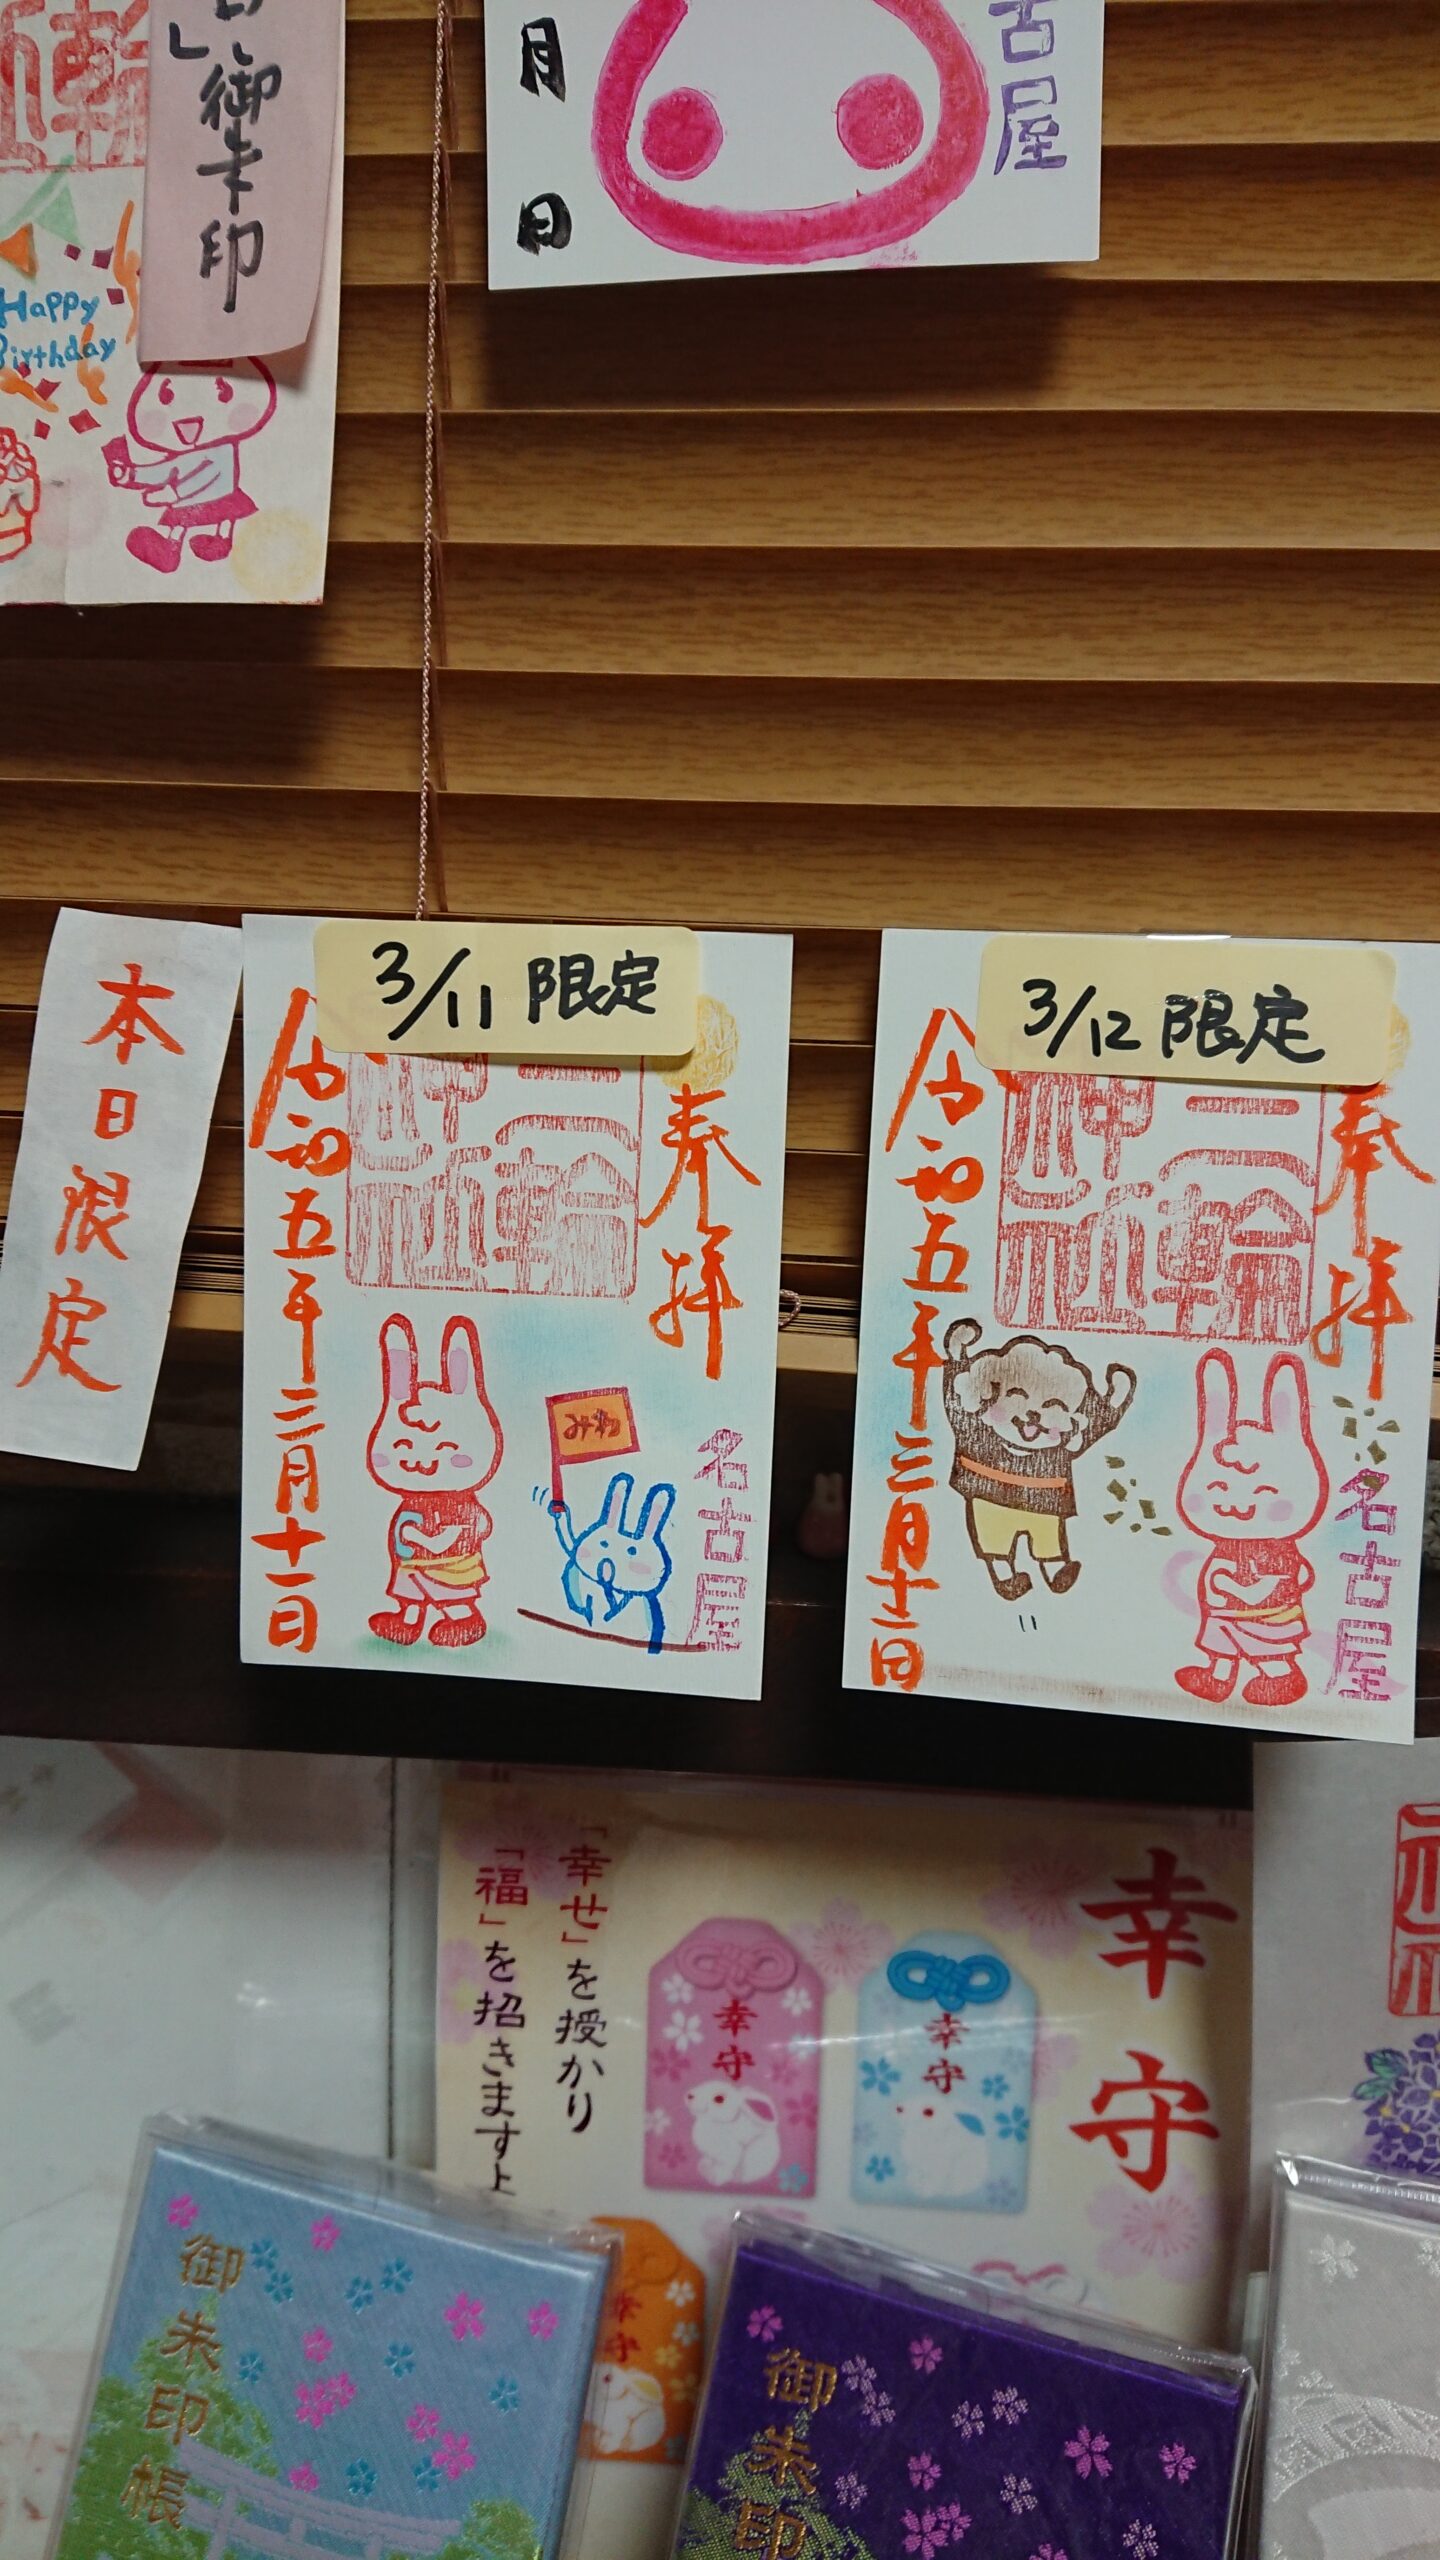 」御朱印
Happy
Birthday
月
日
古屋
本日限定
3/11 限定
奉拝
三輪
神社
令和五年三月十一日
みわ
名古屋
3/12 限定
奉拝
三輪
神社
令和五年三月十二日
名古屋
幸守
「幸せ」を授かり
「福」を招きます
幸守
幸守
幸守
御朱印帳
御朱印